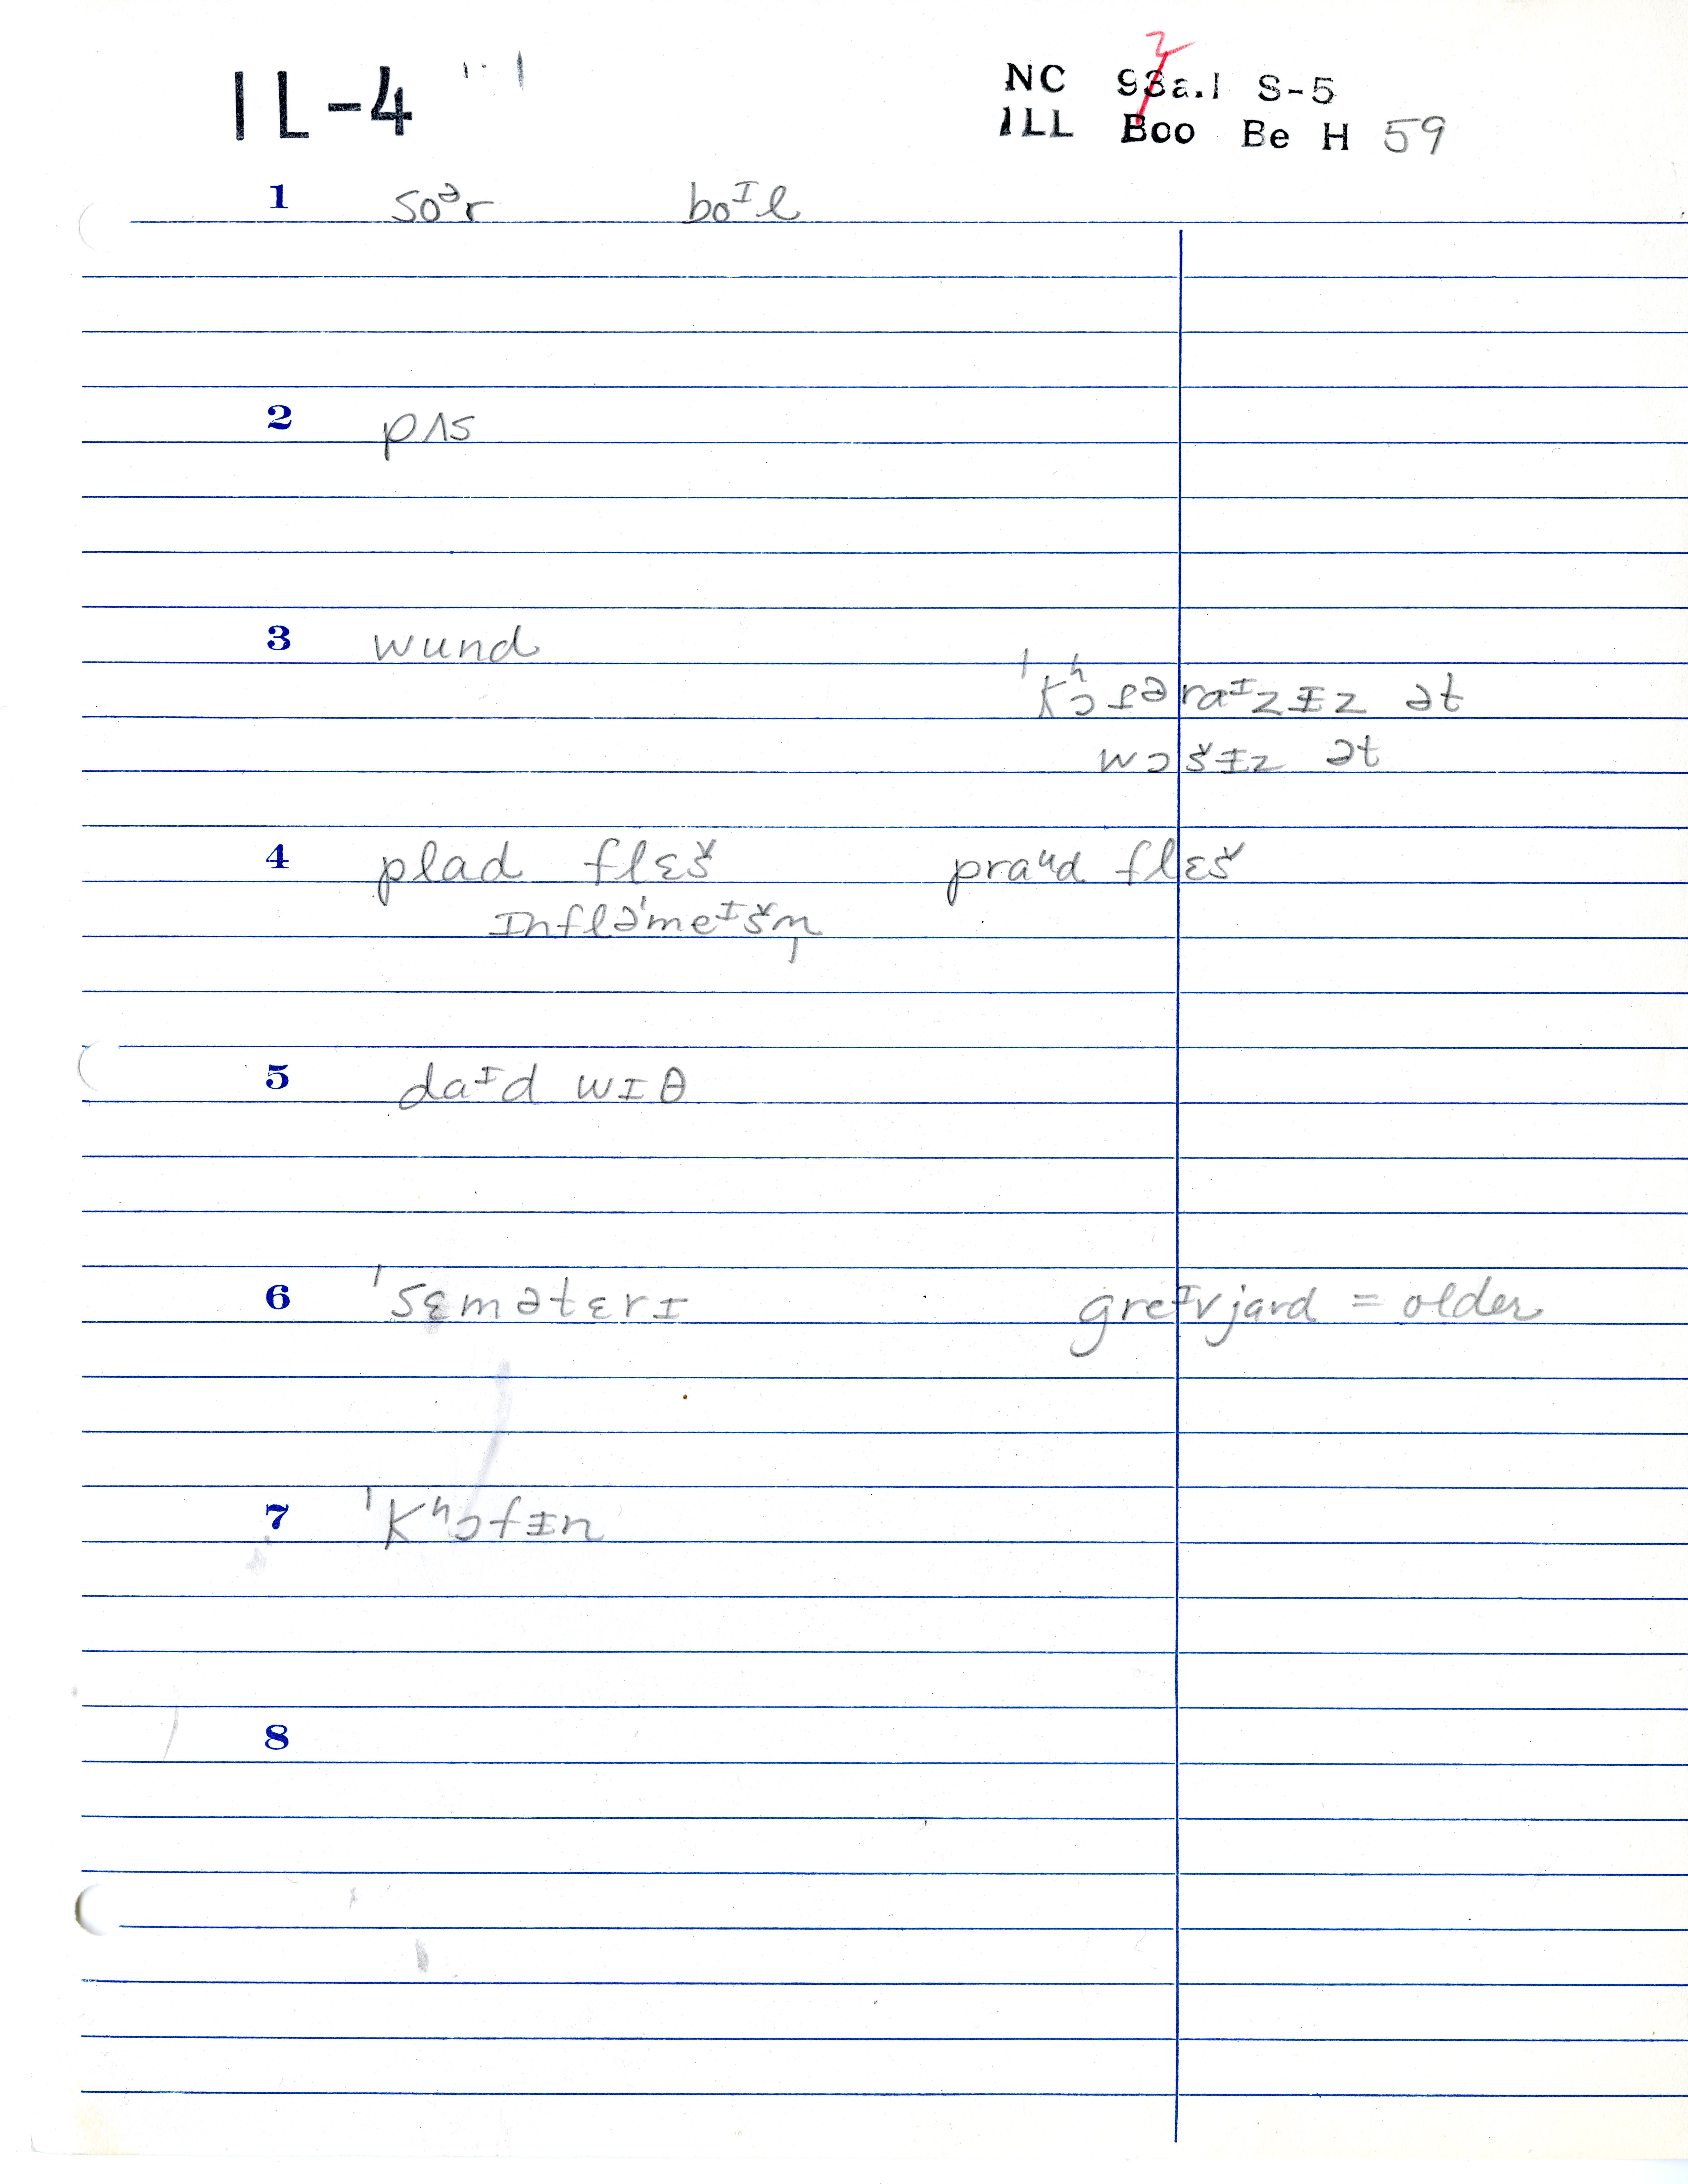 IL-4
NC 93a.1 S-5
2
ILL Boo Be H 59
1 soᵊr boᶦl
2 pʌs
3 wund
ˈkʰɔtəraᶦzᵻz ət
wɔšᵻz ət
4 plad flɛš praᵘd flɛš
ɪnfləˈmeᶦšn̩
5 daᶦd wɪθ
6 ˈsɛmətɛrɪ greᶦvjard = older
7 ˈkʰɔfᵻn
8